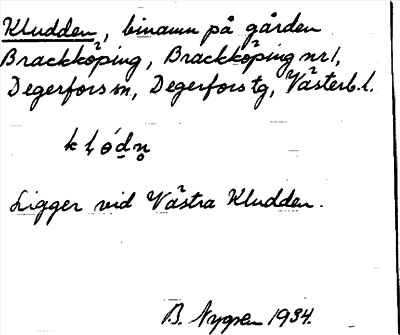 Kludden, binamn på gården
Brackköping, Brackköping nr 1,
Degerfors sn, Degerfors tg, Västerb. l.
Ligger vid Västra Kludden.
B. Nygren 1934.